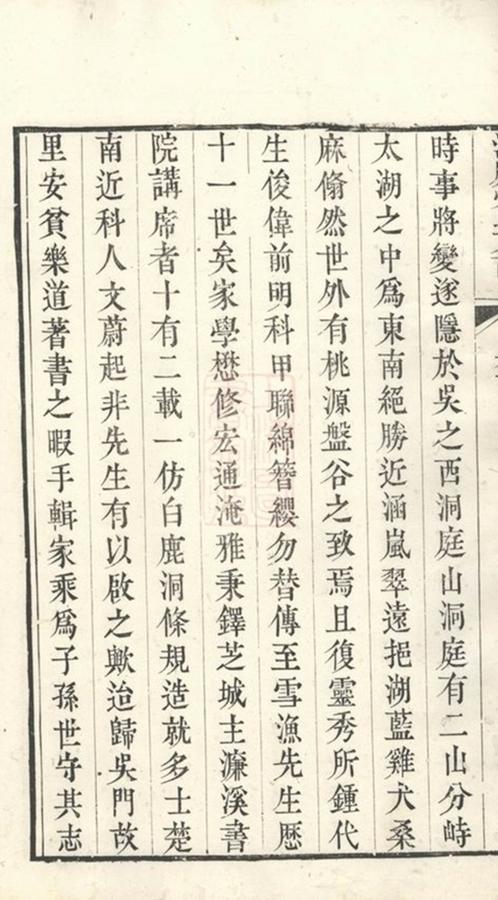 時事將變遂隱於吳之西洞庭山洞庭有二山分峙
太湖之中爲東南絕勝近涵嵐翠遠挹湖藍雞犬桑
麻翛然世外有桃源盤谷之致焉且復靈秀所鍾代
生俊偉前明科甲聯綿簪纓勿替傳至雪漁先生歷
十一世矣家學懋修宏通淹雅秉鐸芝城主濂溪書
院講席者十有二載一仿白鹿洞條規造就多士楚
南近科人文蔚起非先生有以啟之歟迨歸吳門故
里安貧樂道著書之暇手輯家乘爲子孫世守其志